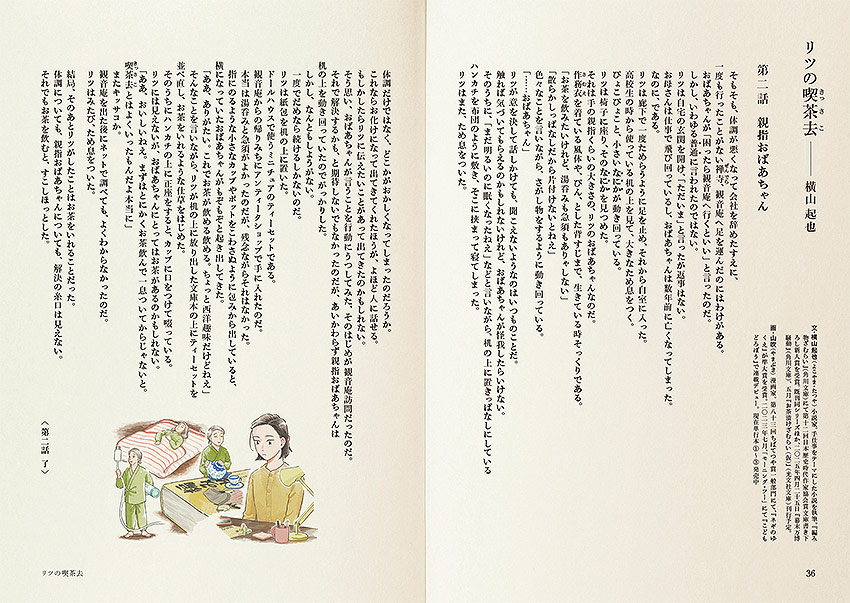 リツの喫茶去――横山起也
きっさこ
第二話　親指おばあちゃん
そもそも、体調が悪くなって会社を辞めたすえに、
一度も行ったことがない禅寺、観音庵へ足を運んだのにはわけがある。
おばあちゃんが「困ったら観音庵へ行くといい」と言ったのだ。
しかし、いわゆる普通に言われたのではない。
リツは自宅の玄関を開け、「ただいま」と言ったが返事はない。
お母さんは仕事で飛び回っているし、おばあちゃんは数年前に亡くなってしまった。
なのに、である。
リツは廊下で一度ためらうように足を止め、それから自室に入った。
高校生の時から使っている机の上を見て、大きなため息をつく。
ぴょこぴょこと小さいなにかが動き回っている。
リツは椅子に座り、そのなにかを見つめた。
それは手の親指くらいの大きさの、リツのおばあちゃんなのだ。
作務衣を着ている風体や、ぴん、とした背すじまで、生きている時そっくりである。
「お茶を飲みたいけれど、湯呑みも急須もありゃしない」
「散らかしっぱなしだから片付けないとねえ」
色々なことを言いながら、さがし物をするように動き回っている。
「……おばあちゃん」
リツが意を決して話しかけても、聞こえないようなのはいつものことだ。
触れば気づいてもらえるのかもしれないけれど、おばあちゃんが怪我したらいけない。
そのうちに、「まだ明るいのに眠くなったねえ」などと言いながら、机の上に置きっぱなしにしている
ハンカチを布団のように敷き、そこに挟まって寝てしまった。
リツはまた、ため息をついた。
36
体調だけではなく、どこかがおかしくなってしまったのだろうか。
これならお化けになって出てきてくれたほうが、よほど人に話せる。
もしかしたらリツに伝えたいことがあって出てきたのかもしれない。
そう思い、おばあちゃんが言うことを行動にうつしてみた、そのはじめが観音庵訪問だったのだ。
それで解決するかも、と期待しないでもなかったのだが、あいかわらず親指おばあちゃんは
机の上を動き回っていたのでがっかりした。
しかし、なんとしてもしょうがない。
一度でだめなら続けるしかないのだ。
リツは紙包を机の上に置いた。
ドールハウスで使うミニチュアのティーセットである。
観音庵からの帰りみちにアンティークショップで手に入れたのだ。
本当は湯呑みと急須がよかったのだが、残念ながらそれはなかった。
指にのるような小さなカップやポットをこわさぬように包みから出していると、
横になっていたおばあちゃんがもぞもぞと起き出してきた。
「ああ、ありがたい。これでお茶が飲める飲める。ちょっと西洋趣味だけどねえ」
そんなことを言いながら、リツが机の上に放り出した文庫本の上にティーセットを
並べ直し、お茶をいれるような仕草をはじめた。
そのうちにハンカチの上に正座をすると、カップに口をつけて啜っている。
リツには見えないが、おばあちゃんにとってはお茶があるのかもしれない。
「ああ、おいしいねえ。まずはとにかくお茶飲んで一息ついてからじゃないと。
喫茶去とはよくいったもんだよ本当に」
きっさこ
またキッサコか。
観音庵を出た後にネットで調べても、よくわからなかったのだ。
リツはみたび、ため息をついた。
結局、そのあとリツがしたことはお茶をいれることだった。
体調についても、親指おばあちゃんについても、解決の糸口は見えない。
それでもお茶を飲むと、すこしほっとした。
〈第二話　了〉
リツの喫茶去